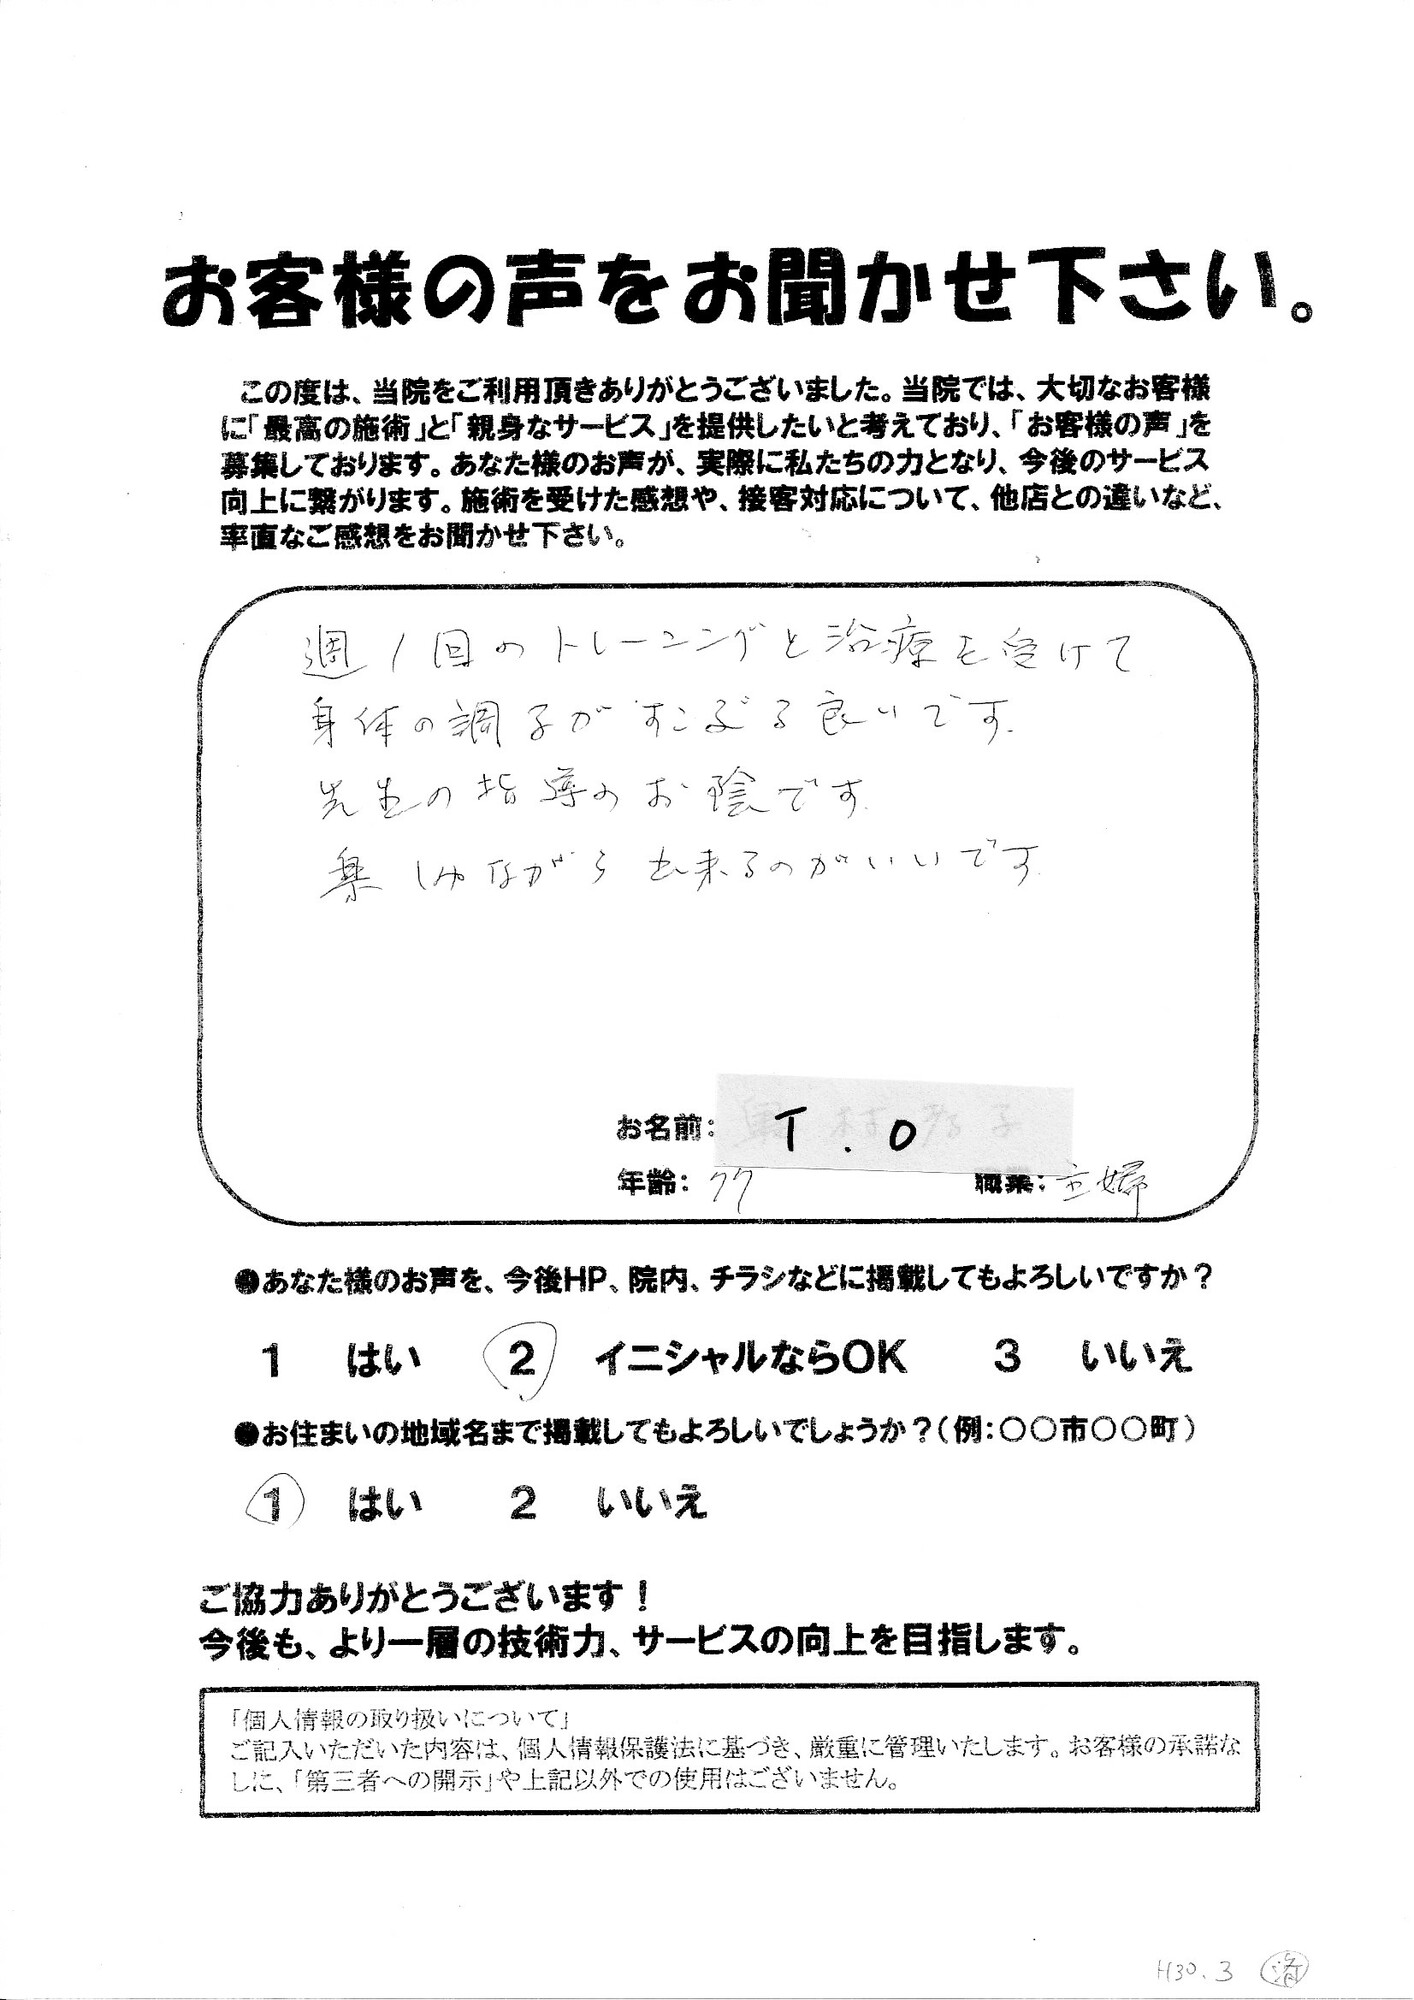 お客様の声をお聞かせ下さい。
この度は、当院をご利用頂きありがとうございました。当院では、大切なお客様
に「最高の施術」と「親身なサービス」を提供したいと考えており、「お客様の声」を
募集しております。あなた様のお声が、実際に私たちの力となり、今後のサービス
向上に繋がります。施術を受けた感想や、接客対応について、他店との違いなど、
率直なご感想をお聞かせ下さい。
週1回のトレーニングと治療を受けて
身体の調子がすこぶる良いです.
先生の指導のお陰です.
楽しみながら出来るのがいいです.
お名前: T.O
年齢: 77 職業: 主婦
●あなた様のお声を、今後HP、院内、チラシなどに掲載してもよろしいですか？
1 はい 2 イニシャルならOK 3 いいえ
●お住まいの地域名まで掲載してもよろしいでしょうか？(例:〇〇市〇〇町)
1 はい 2 いいえ
ご協力ありがとうございます！
今後も、より一層の技術力、サービスの向上を目指します。
「個人情報の取り扱いについて」
ご記入いただいた内容は、個人情報保護法に基づき、厳重に管理いたします。お客様の承諾な
しに、「第三者への開示」や上記以外での使用はございません。
H30.3 済